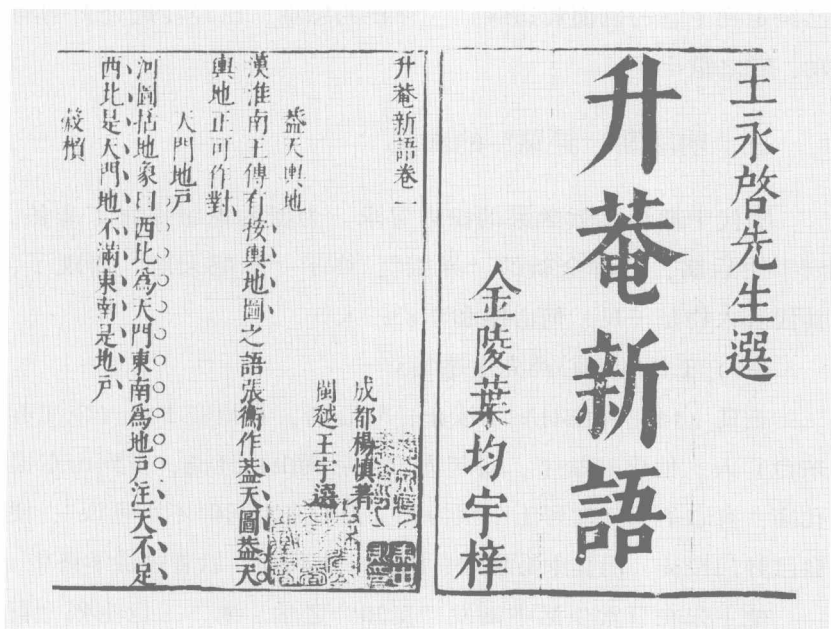 王永啓先生選
升菴新語
金陵葉均宇梓
升菴新語卷一
成都楊慎著
閩越王宇選
葢天輿地
漢淮南王傳有按輿地圖之語張衡作葢天圖葢天
輿地正可作對
天門地戸
河圖括地象曰西北爲天門東南爲地戸注天不足
西北是天門地不滿東南是地戸
殽櫝